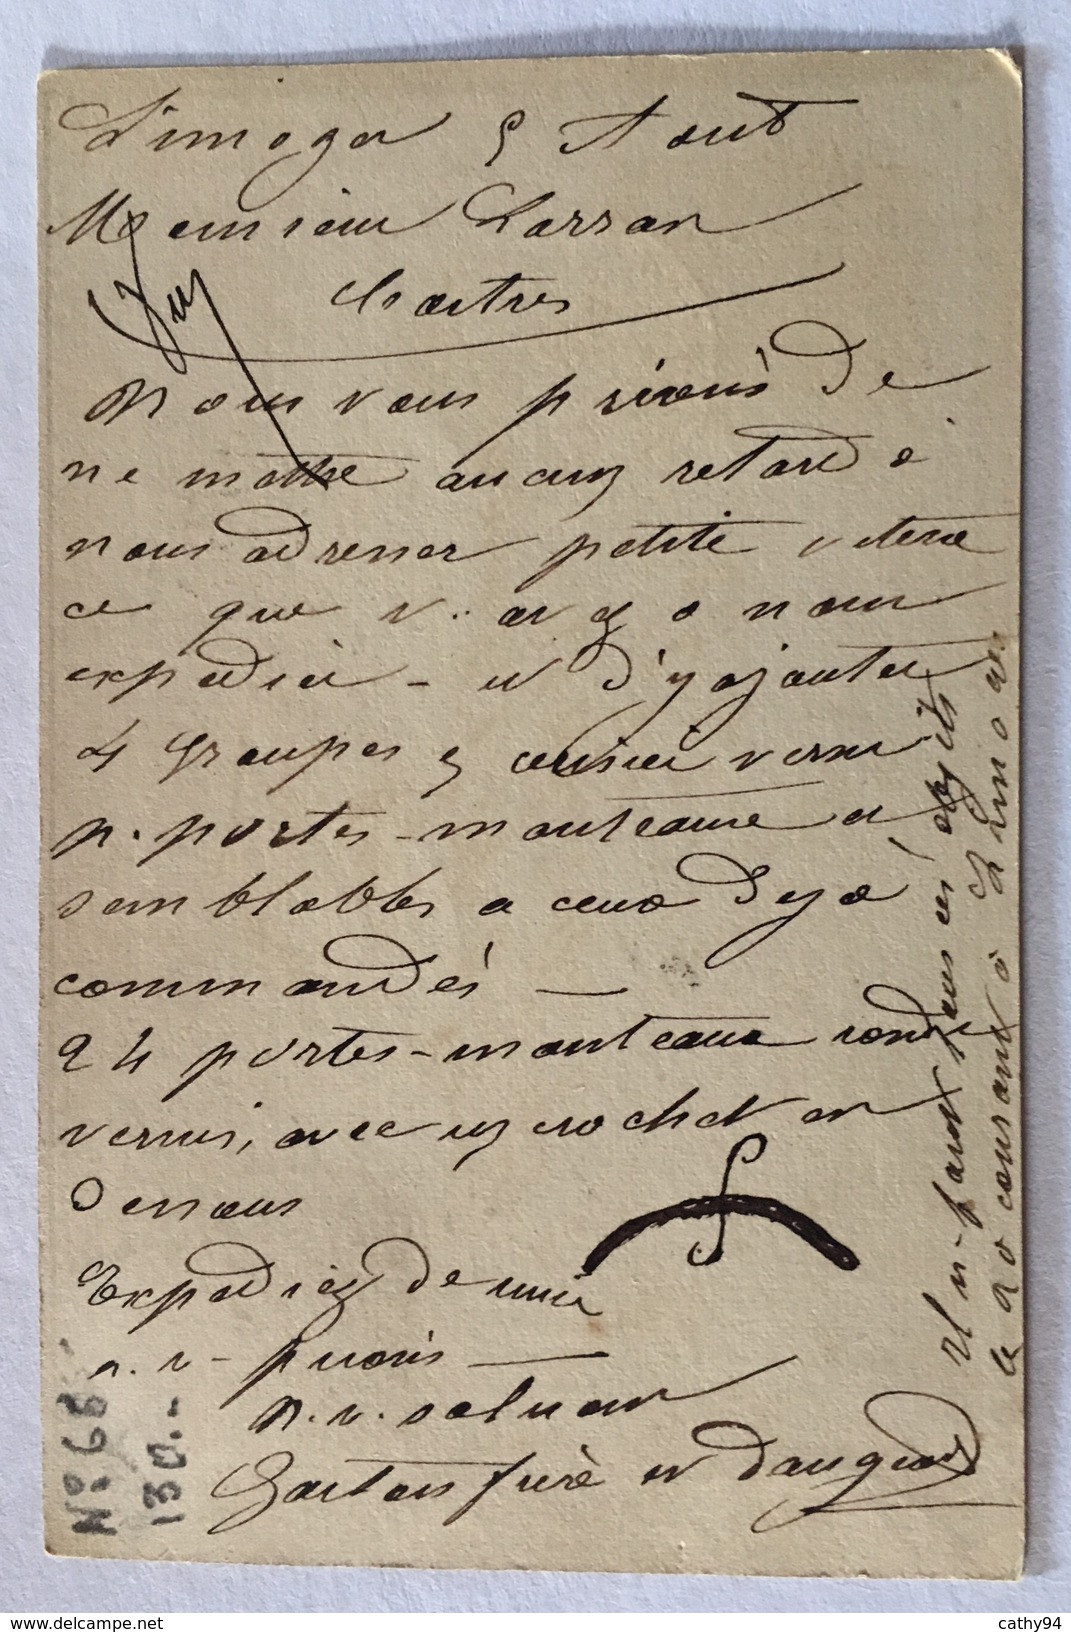 Limoges 5 Aout
Monsieur Larran
Chartres
Nous vous prions de
ne mettre aucun retard à
nous adresser petite vitesse
ce que v. av à nous
expedier - et d'y ajouter
4 Groupes cerisier verni
p. portes-manteaux et
semblables a ceux deja
commandés —
24 portes-manteaux ronds
vernis, avec un crochet en
dessous
Expediez de suite
n. v - prions —
n. v. saluons
Gaston frère et
Il n. faut tous ces objets
le 20 courant à Limoges.
No: 68
130.-
cathy94